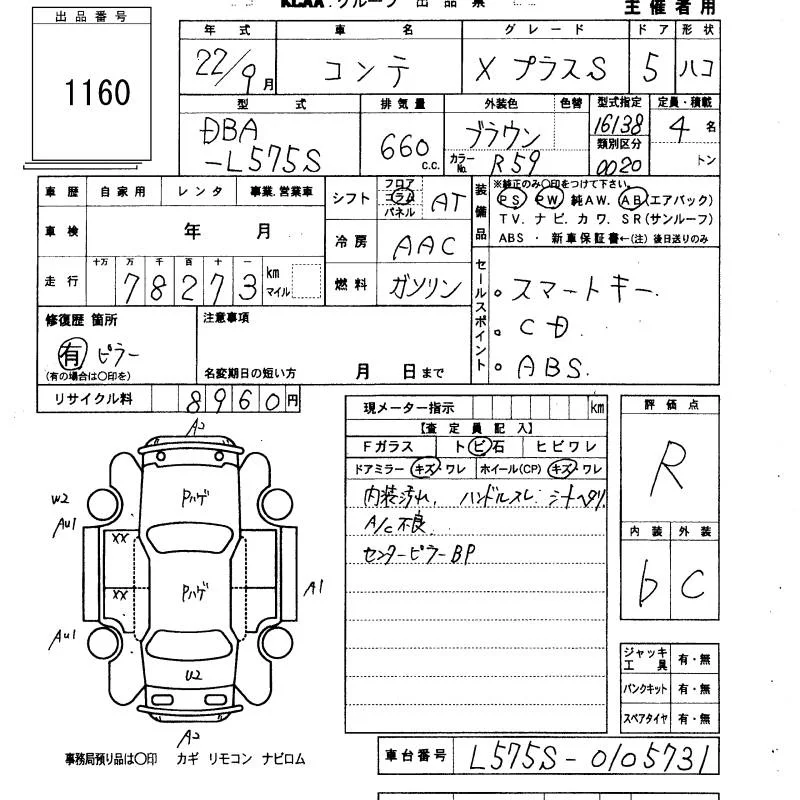 KCAA.グループ 出品票
主催者用
出品番号
1160
年式 車名 グレード ドア 形状
22/9月 コンテ X プラスS 5 ハコ
型式 排気量 外装色 色替 型式指定 定員・積載
DBA
-L575S
660 c.c.
ブラウン
カラーNo. R59
16138
類別区分
0020
4名
トン
車歴 自家用 レンタ 事業.営業車
車検 年 月
走行 十万 万 千 百 十 一
78273 km マイル
シフト フロア コラム パネル AT
冷房 AAC
燃料 ガソリン
装備品
※純正のみ〇印をつけて下さい。
PS PW 純AW. AB(エアバック)
TV. ナビ. カワ. SR(サンルーフ)
ABS ・ 新車保証書←(注) 後日送りのみ
セールスポイント
。スマートキー.
。CD.
。ABS.
修復歴 箇所
有 ピラー
(有の場合は〇印を)
注意事項
名変期日の短い方 月 日まで
リサイクル料 8960円
現メーター指示 km
【査定員記入】
Fガラス トビ石 ヒビワレ
ドアミラー キズ・ワレ ホイール(CP) キズ・ワレ
内装汚れ, ハンドルスレ. シートヘタリ.
A/C不良.
センターピラーBP
評価点
R
内装 外装
b C
ジャッキ工具 有・無
パンクキット 有・無
スペアタイヤ 有・無
A2
W2
AU1
Pハゲ
XX
Pハゲ
XX
A1
AU1
U2
A2
事務局預り品は〇印 カギ リモコン ナビロム
車台番号 L575S-0105731